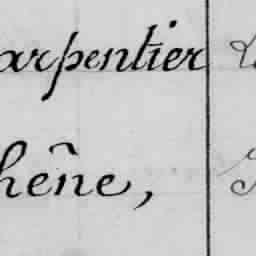 arpentier
hêne,